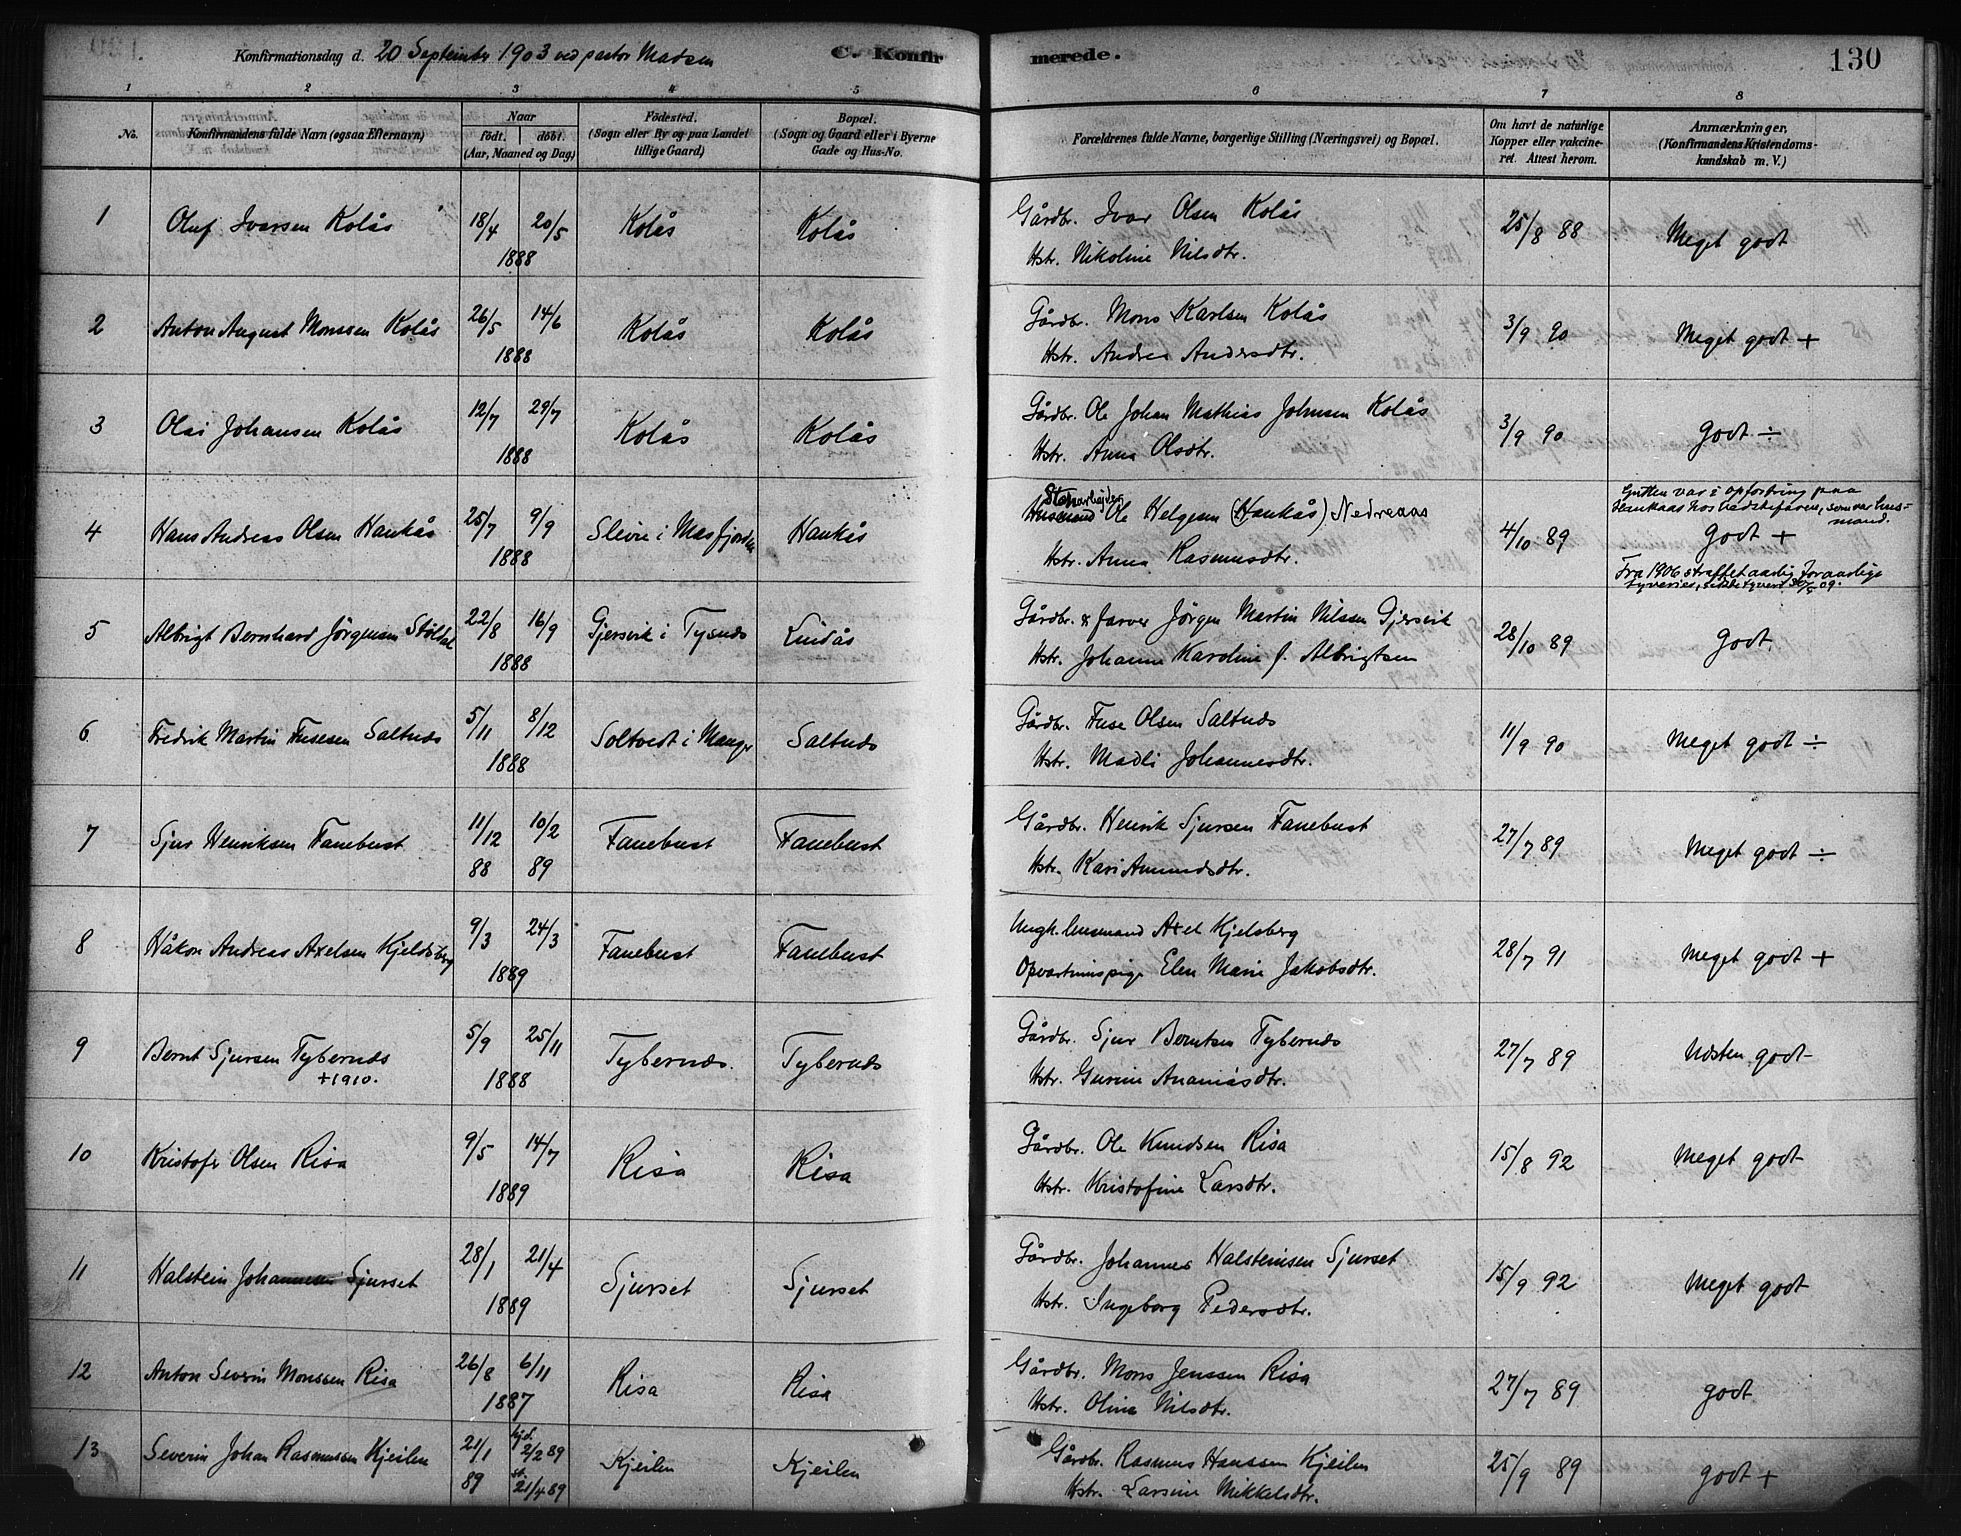 Konfirmationsdag d. 20 September 1903 ved pastor Madsen C. Konfirmerede. 130
1 2 3 4 5 6 7 8
No. Konfirmandens fulde Navn (ogsaa Efternavn) Naar født. døbt. (Aar, Maaned og Dag.) Fødested. (Sogn eller By og paa Landet tillige Gaard) Bopæl. (Sogn og Gaard eller i Byerne Gade og Hus-No. Forældrenes fulde Navne, borgerlige Stilling (Næringsvei) og Bopæl. Om havt de naturlige Kopper eller vakcineret. Attest herom. Anmærkninger. (Konfirmandens Kristendomskundskab m. V.)
1 Oluf Ivarsen Kolås 18/4 20/5 1888 Kolås Kolås Gårdbr. Ivar Olsen Kolås 25/8 88 Meget godt
Hstr. Nikoline Nilsdtr.
2 Anton August Monssen Kolås 26/5 14/6 1888 Kolås Kolås Gårdbr. Mons Karlsen Kolås 3/9 90 Meget godt +
Hstr. Andrea Andersdtr.
3 Olai Johansen Kolås 12/7 29/7 1888 Kolås Kolås Gårdbr. Ole Johan Mathias Johnsen Kolås 3/9 90 Godt ÷
Hstr. Anna Olsdtr.
4 Hans Andreas Olsen Hankås 25/7 9/9 1888 Sleire i Masfjorden Hankås Husmand Ole Helgesen (Hankås) Nedreaas 4/10 89 Godt +
Hstr. Anna Rasmusdtr.
Gutten var i opfostring paa
Hankaas hos Bedstefaren, som var husmand.
Fra 1906 straffet aarlig for aarlige
tyverier, sidste tyveri 30/5 09.
5 Albrigt Bernhard Jørgensen Støldal 22/8 16/9 1888 Gjersvik i Tysnes Lindås Gårdbr. & farver Jørgen Martin Nilssen Gjersvik 28/10 89 Godt.
Hstr. Johanne Karoline f. Albrigtsen
6 Fredrik Martin Fusesen Saltnes 5/11 8/12 1888 Soltvedt i Manger Saltnes Gårdbr. Fuse Olsen Saltnes 11/9 90 Meget godt ÷
Hstr. Madli Johannesdtr.
7 Sjur Henriksen Fanebust 11/12 88 10/2 89 Fanebust Fanebust Gårdbr. Henrik Sjursen Fanebust 27/7 89 Meget godt ÷
Hstr. Kari Amundsdtr.
8 Håkon Andreas Axelsen Kjeldsberg 9/3 24/3 1889 Fanebust Fanebust Ungk. husmand Axel Kjelsberg 28/7 91 Meget godt +
Opvartningspige Elen Marie Jakobsdtr.
9 Bernt Sjursen Tybernes 5/9 25/11 1888 Tybernes. Tybernes Gårdbr. Sjur Berntsen Tybernes 27/7 89 Næsten godt
+1910. Hstr. Gurine Ananiasdtr.
10 Kristofer Olsen Risa 9/5 14/7 1889 Risa Risa Gårdbr. Ole Knudsen Risa 15/8 92 Meget godt
Hstr. Kristofine Larsdtr.
11 Halstein Johannesen Sjurset 28/1 21/4 1889 Sjurset Sjurset Gårdbr. Johannes Halsteinsen Sjurset 15/9 92 Meget godt
Hstr. Ingeborg Pedersdtr.
12 Anton Severin Monssen Risa 26/8 6/11 1887 Risa Risa Gårdbr. Mons Jenssen Risa 27/7 89 Godt
Hstr. Oline Nilsdtr.
13 Severin Johan Rasmussen Kjeilen 21/1 89 hjd. 2/2 89 st. 21/4 89 Kjeilen Kjeilen Gårdbr. Rasmus Hanssen Kjeilen 25/9 89 Godt +
Hstr. Larsine Mikkelsdtr.